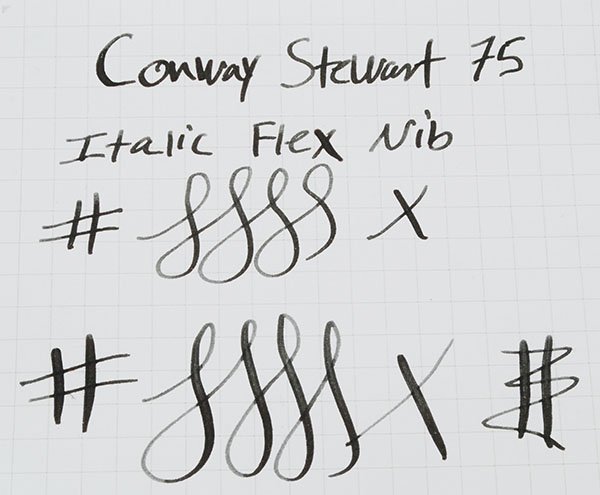 Conway Stewart 75
Italic Flex Nib
# X
# X #